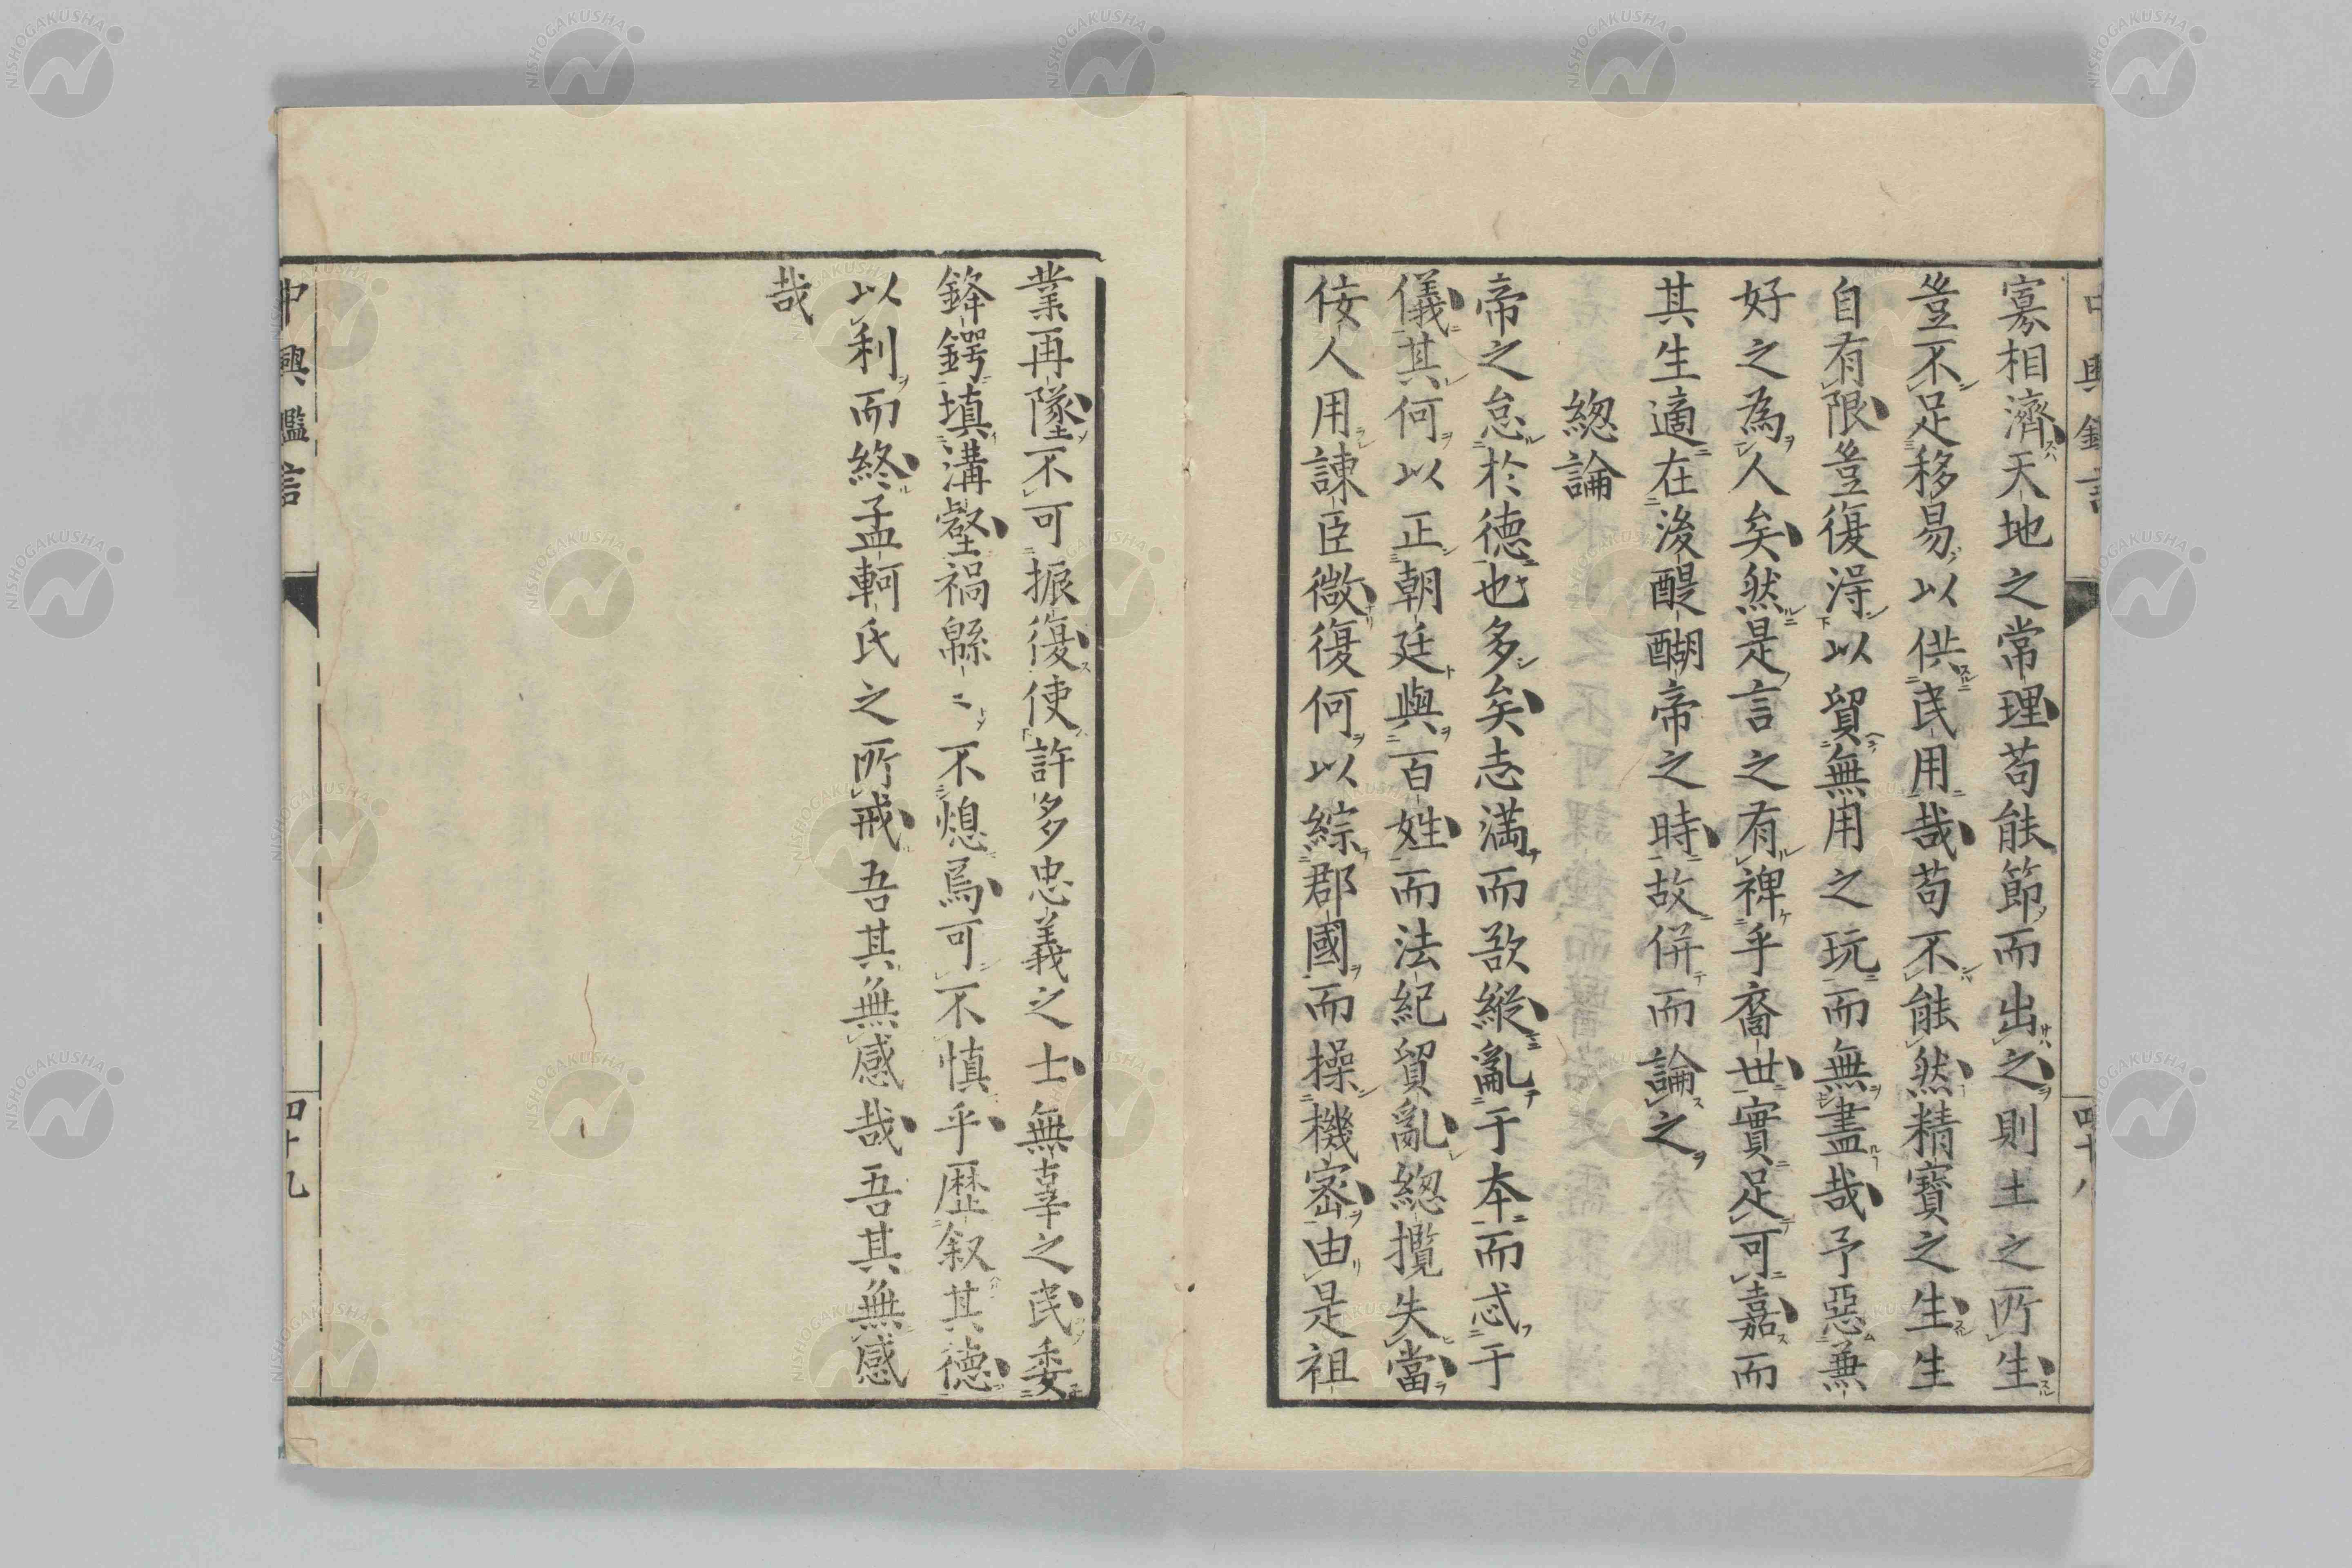 寡相濟天地之常理苟能節而出之則土之所生
豈不足移易以供民用哉苟不能然精寶之生生
自有限豈復淂以貿無用之玩而無盡哉予惡兼
好之為人矣然是言之有裨乎裔世實足可嘉而
其生適在後醍醐帝之時故併而論之
總論
帝之怠於德也多矣志満而欲縱亂于本而忒于
儀其何以正朝廷與百姓而法紀貿亂總攬失當
佞人用諫臣微復何以綜郡國而操機密由是祖
業再墜不可振復使許多忠義之士無辜之民委
鋒鍔填溝壑禍緜〻不熄焉可不慎乎歴叙其德
以利而終孟軻氏之所戒吾其無感哉吾其無感
哉
中興鑑言
四十九